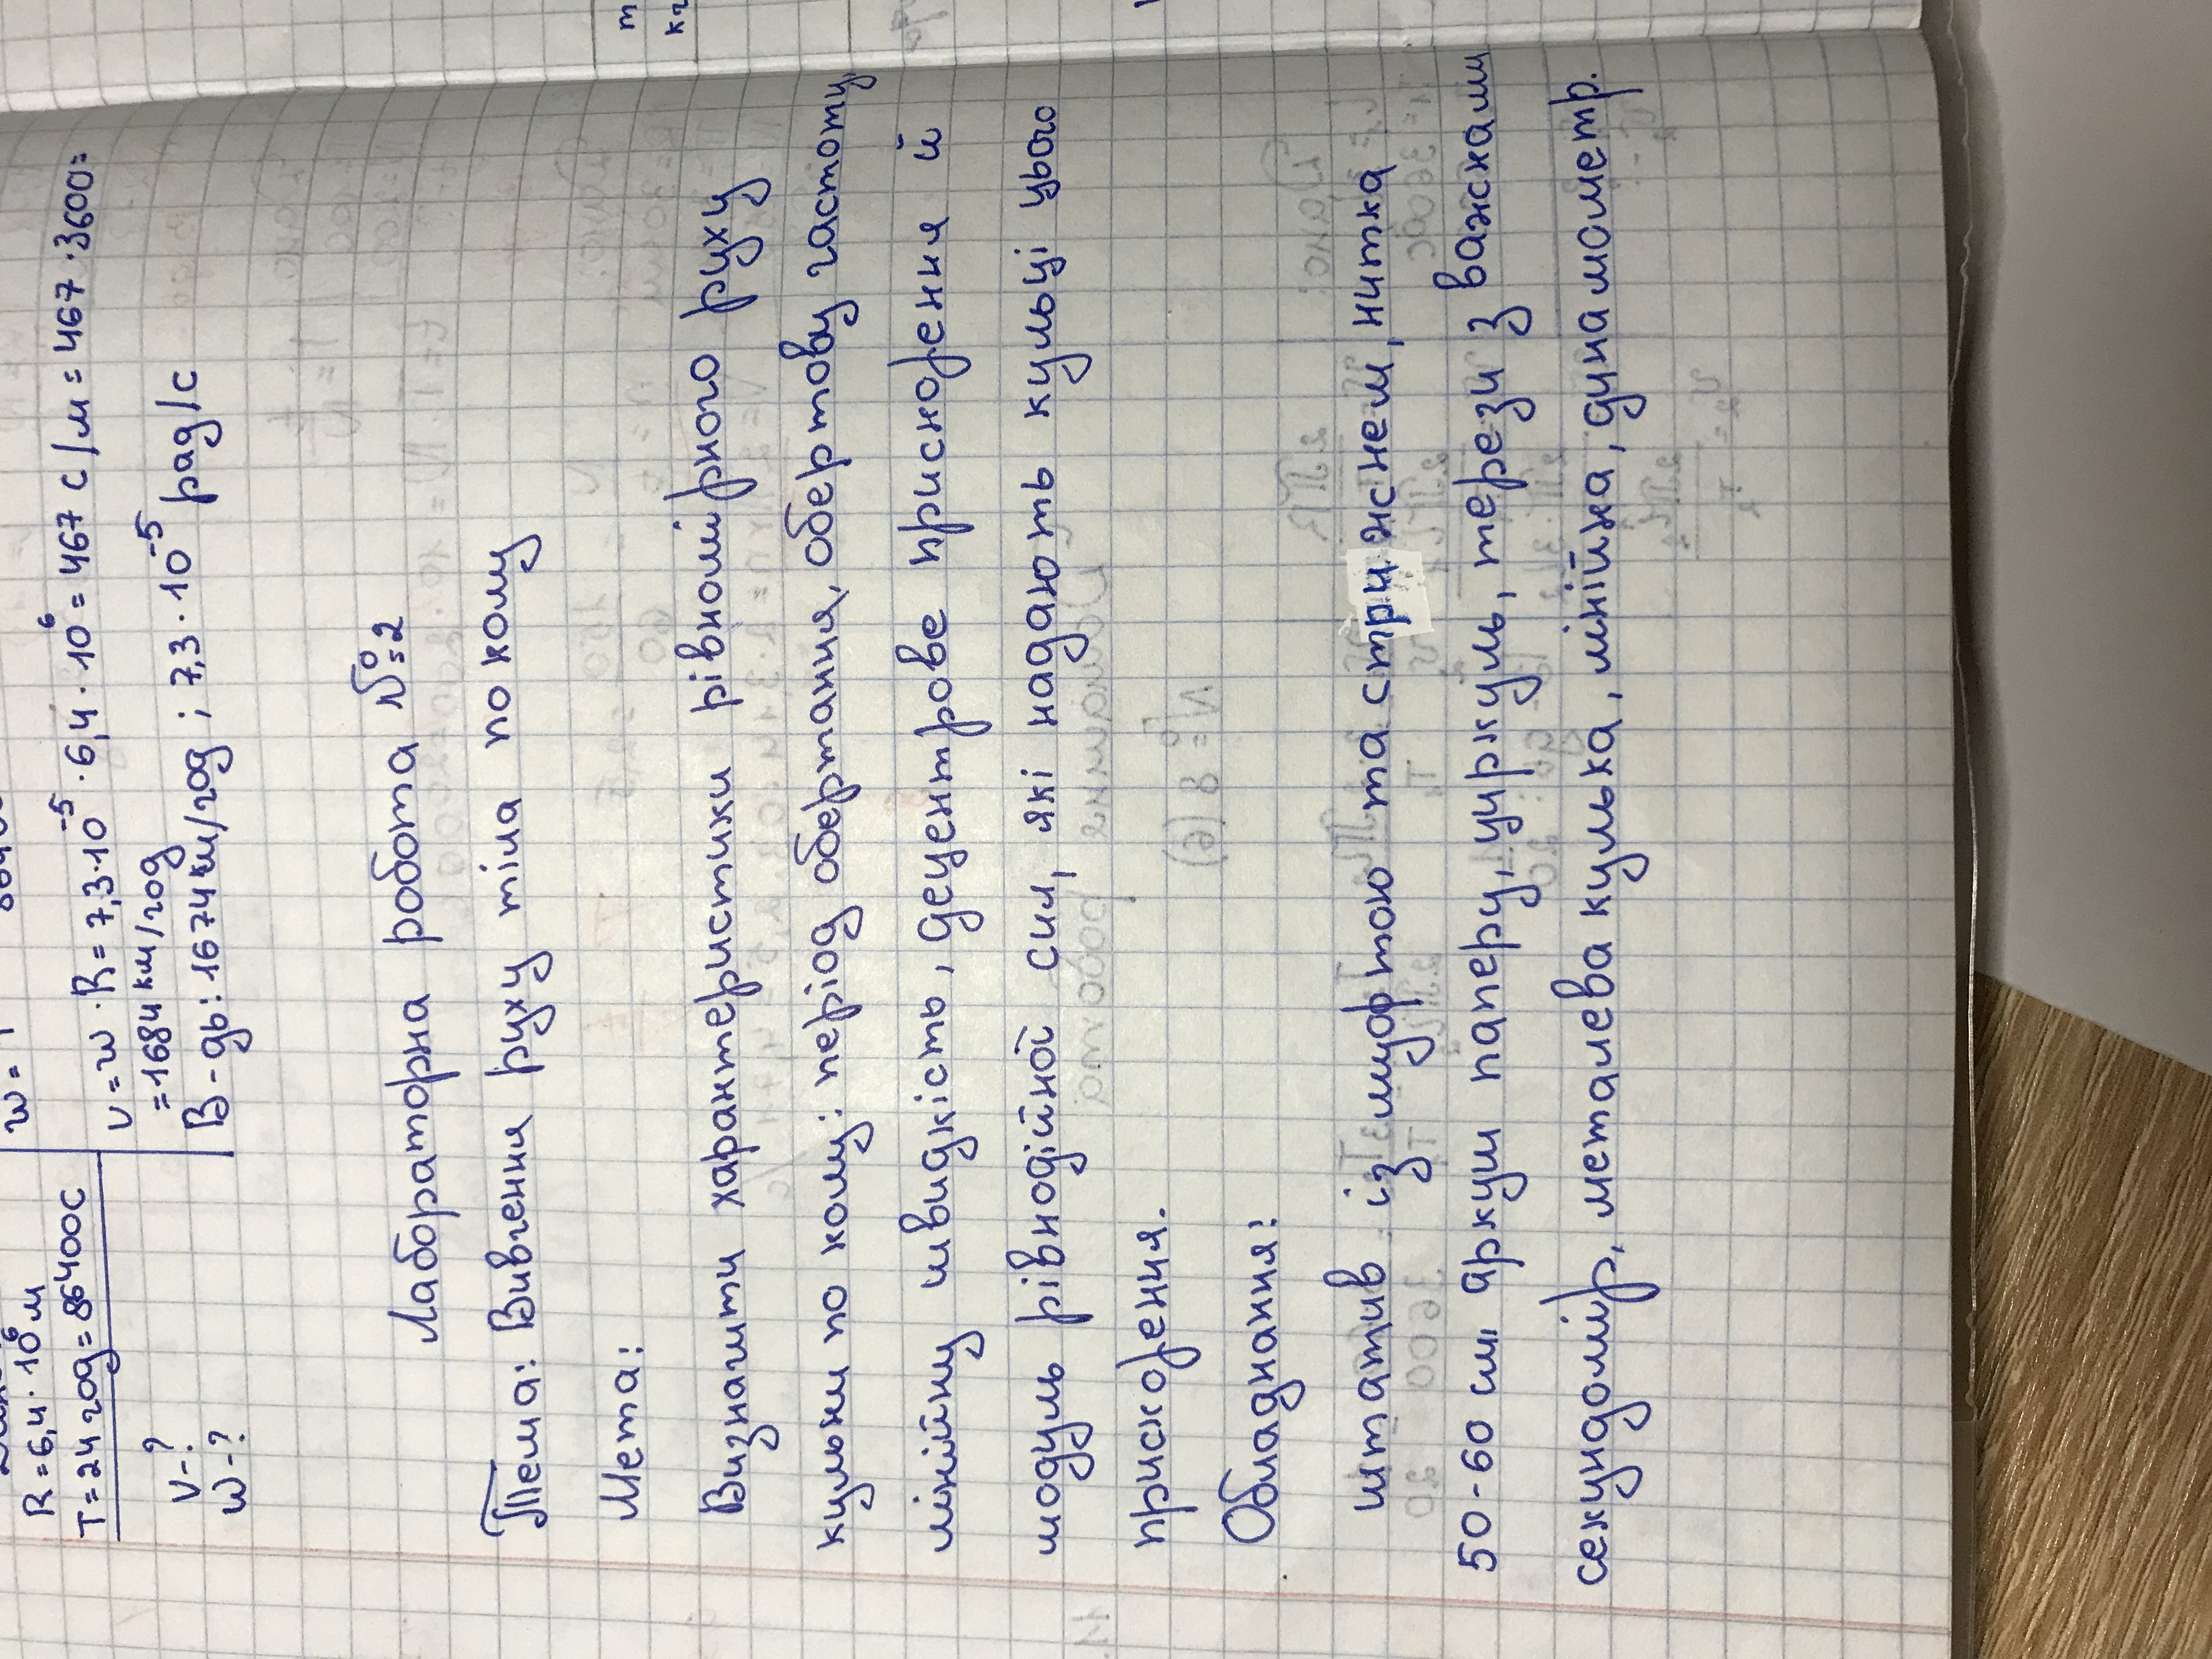 R = 6,4 · 10⁶ м
T = 24 год = 86400 с
V - ?
w - ?
w =
v = w · R = 7,3 · 10⁻⁵ · 6,4 · 10⁶ = 467 с/м = 467 · 3600 =
= 1684 км/год
В - дь: 1674 км/год ; 7,3 · 10⁻⁵ рад/с
Лабораторна робота № 2
Тема: Вивчення руху тіла по колу
Мета:
Визначити характеристики рівномірного руху
кульки по колу: період обертання, обертову частоту,
лінійну швидкість, децентрове прискорення й
модуль рівнодійної сил, які надають кульці цього
прискорення.
Обладнання:
штатив із муфтою та стрижнем, нитка
50-60 см, аркуш паперу, циркуль, терези з важками
секундомір, металева кулька, лінійка, динамометр.
т
кг